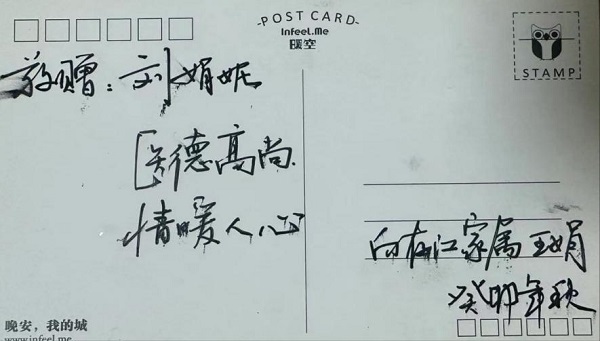 POST CARD
Infeel.Me
暖空
STAMP
敬赠：刘娟妮
医德高尚
情暖人心
家属 王娟
癸卯年秋
晚安，我的城
www.infeel.me